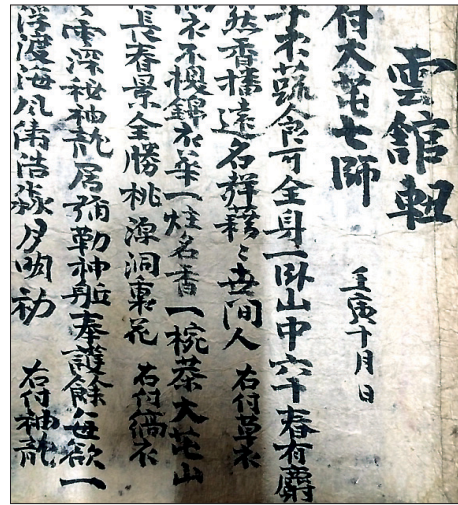 雲舘
付大芚七師
壬寅十月日
衣蔬食可全身一臥山中六十春有麝
然香播遠名聲籍〻世間人 右付草衣
衣不換錦衣華一炷名香一椀茶大芚山
長春景全勝桃源洞裏花 右付縞衣
雲深秘袖龍居彌勒神船奉護餘每欲一
浮渡海風濤浩淼月明初 右付袖龍